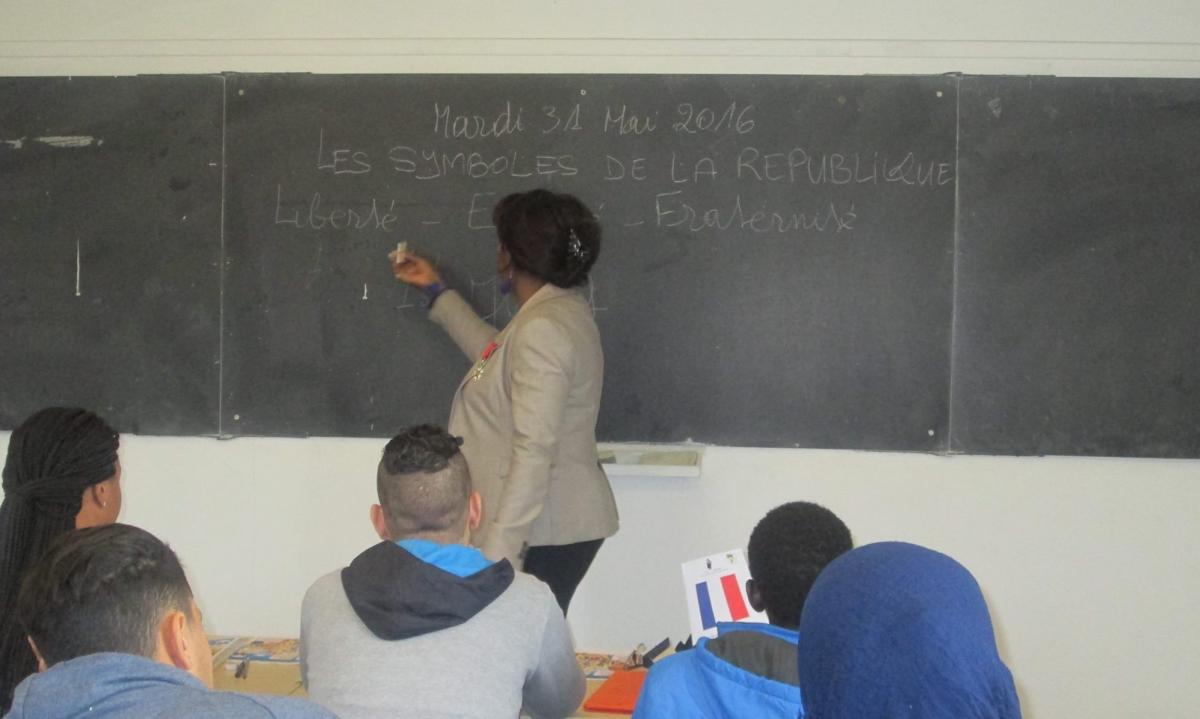 Mardi 31 Mai 2016
LES SYMBOLES DE LA REPUBLIQUE
Liberté - - Fraternité